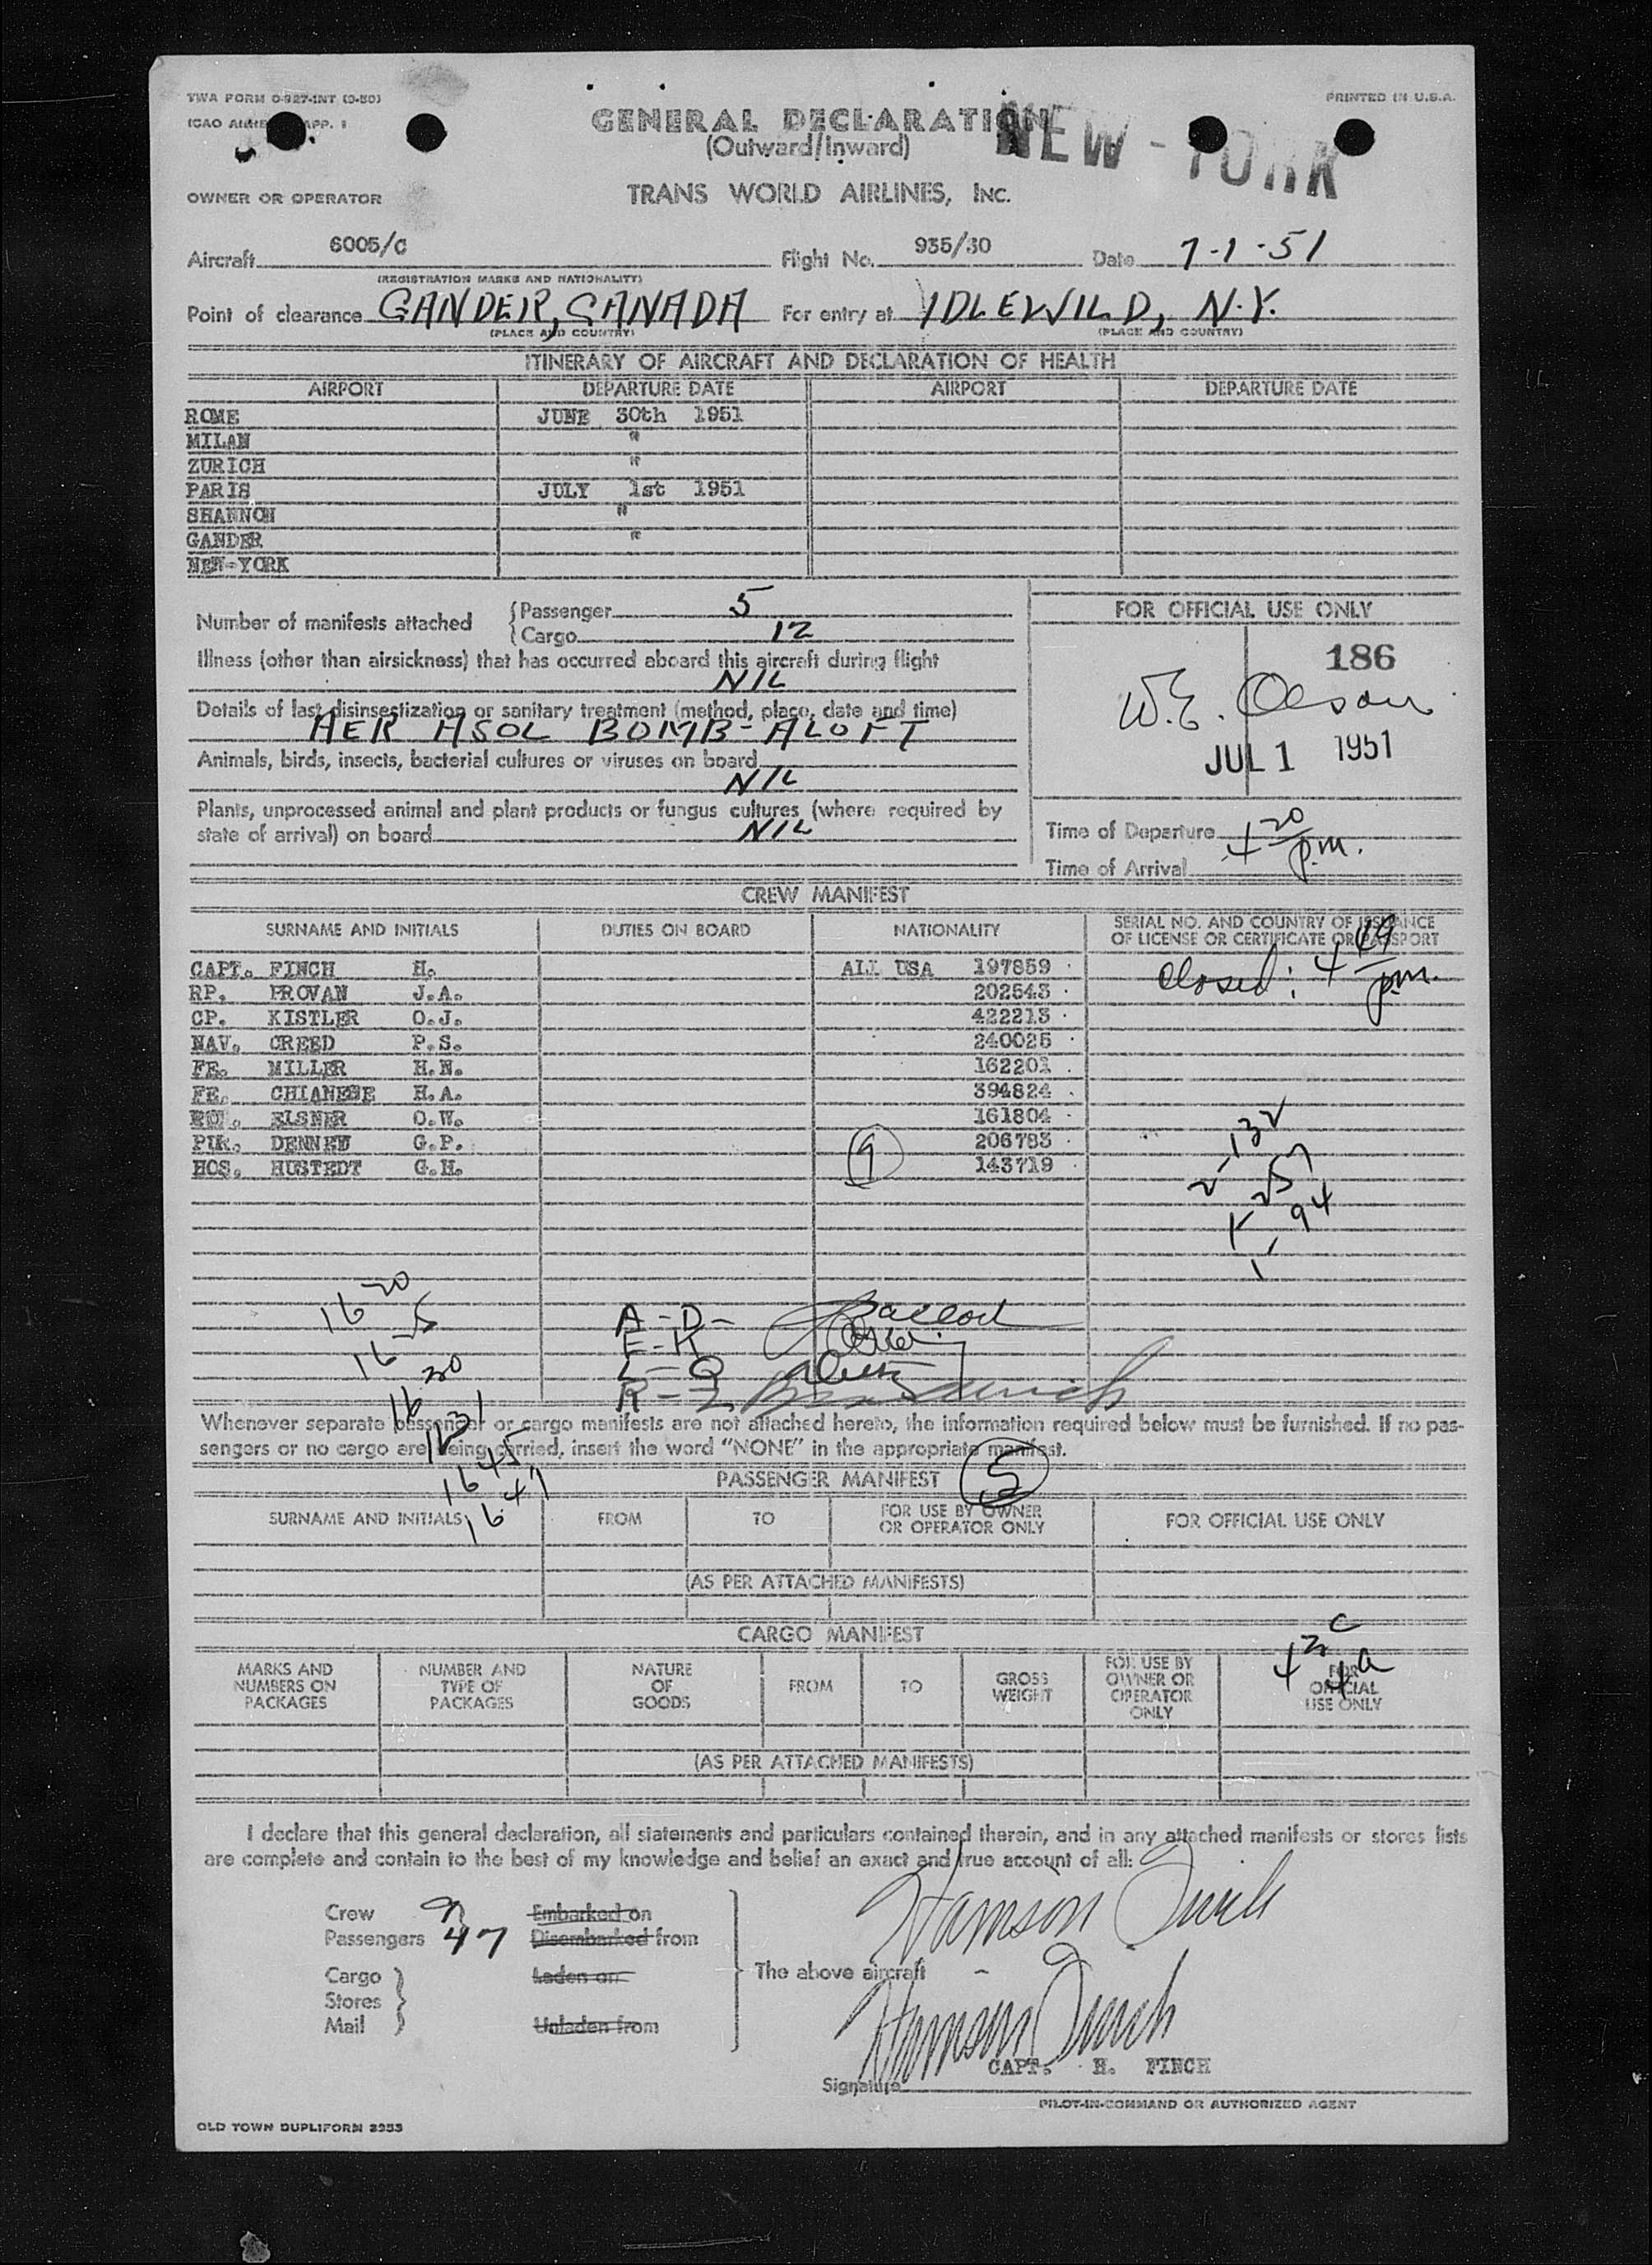 TWA FORM O-927-INT (3-50)
PRINTED IN U.S.A.
ICAO APP. 1
GENERAL DECLARATION
(Outward/Inward)
NEW-YORK
OWNER OR OPERATOR TRANS WORLD AIRLINES, Inc.
Aircraft 6005/C Flight No. 935/30 Date 7-1-51
(REGISTRATION MARKS AND NATIONALITY)
Point of clearance GANDER, CANADA For entry at IDLEWILD, N.Y.
(PLACE AND COUNTRY) (PLACE AND COUNTRY)
ITINERARY OF AIRCRAFT AND DECLARATION OF HEALTH
AIRPORT DEPARTURE DATE AIRPORT DEPARTURE DATE
ROME JUNE 30th 1951
MILAN "
ZURICH "
PARIS JULY 1st 1951
SHANNON "
GANDER "
NEW-YORK
Number of manifests attached { Passenger 5
{ Cargo 12
FOR OFFICIAL USE ONLY
186
W.E. Olson
JUL 1 1951
Illness (other than airsickness) that has occurred aboard this aircraft during flight
NIL
Details of last disinsectization or sanitary treatment (method, place, date and time)
AER ASOL BOMB-ALOFT
Animals, birds, insects, bacterial cultures or viruses on board
NIL
Plants, unprocessed animal and plant products or fungus cultures (where required by
state of arrival) on board NIL
Time of Departure
4 20 p.m.
Time of Arrival
CREW MANIFEST
SURNAME AND INITIALS DUTIES ON BOARD NATIONALITY SERIAL NO. AND COUNTRY OF ISSUANCE
OF LICENSE OR CERTIFICATE OR PASSPORT
Closed: 4 49 p.m.
CAPT. FINCH H. ALL USA 197859
RP. PROVAN J.A. 202543
CP. KISTLER O.J. 422213
NAV. CREED P.S. 240025
FE. MILLER H.N. 162201
FE. CHIANESE H.A. 394824
ELSNER O.W. 161804
PUR. DENNEU G.P. 206783
HOS. HUSTEDT G.H. 9 143719
2-132
1-257
1- 94
16 20
16 25
16 30
16 31
16 45
16 47
A-D-
E-K
L-Q
R-Z
Whenever separate passenger or cargo manifests are not attached hereto, the information required below must be furnished. If no pas-
sengers or no cargo are being carried, insert the word "NONE" in the appropriate manifest.
PASSENGER MANIFEST 5
SURNAME AND INITIALS FROM TO FOR USE BY OWNER
OR OPERATOR ONLY FOR OFFICIAL USE ONLY
(AS PER ATTACHED MANIFESTS)
CARGO MANIFEST
43 C
4 a
MARKS AND
NUMBERS ON
PACKAGES NUMBER AND
TYPE OF
PACKAGES NATURE
OF
GOODS FROM TO GROSS
WEIGHT FOR USE BY
OWNER OR
OPERATOR
ONLY FOR
OFFICIAL
USE ONLY
(AS PER ATTACHED MANIFESTS)
I declare that this general declaration, all statements and particulars contained therein, and in any attached manifests or stores lists
are complete and contain to the best of my knowledge and belief an exact and true account of all:
Crew 9 Embarked on
Passengers 47 Disembarked from
Cargo Laden on
Stores
Mail Unladen from
The above aircraft
Hamson Finch
Hamson Finch
CAPT. H. FINCH
Signature
PILOT-IN-COMMAND OR AUTHORIZED AGENT
OLD TOWN DUPLIFORM 2953